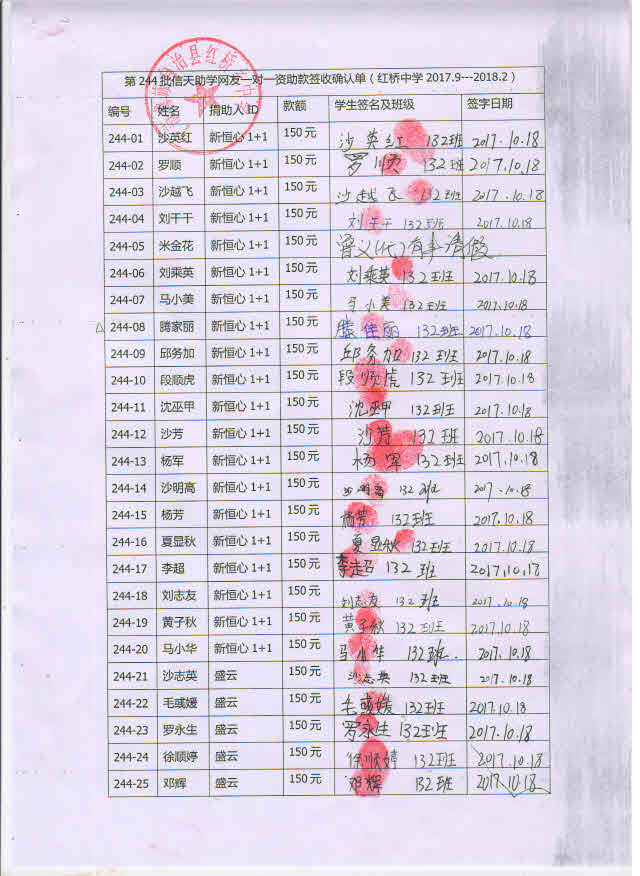 第244批信天助学网友一对一资助款签收确认单（红桥中学2017.9---2018.2）
编号 姓名 捐助人ID 款额 学生签名及班级 签字日期
244-01 沙英红 新恒心1+1 150元 沙英红 132班 2017.10.18
244-02 罗顺 新恒心1+1 150元 罗顺 132班 2017.10.18
244-03 沙越飞 新恒心1+1 150元 沙越飞 132班 2017.10.18
244-04 刘干干 新恒心1+1 150元 刘干干 132班 2017.10.18
244-05 米金花 新恒心1+1 150元 曾义(代)有事请假
244-06 刘乘英 新恒心1+1 150元 刘乘英 132班 2017.10.18
244-07 马小美 新恒心1+1 150元 马小美 132班 2017.10.18
244-08 腾家丽 新恒心1+1 150元 132班 2017.10.18
244-09 邱务加 新恒心1+1 150元 邱务加 132班 2017.10.18
244-10 段顺虎 新恒心1+1 150元 段顺虎 132班 2017.10.18
244-11 沈巫甲 新恒心1+1 150元 沈巫甲 132班 2017.10.18
244-12 沙芳 新恒心1+1 150元 沙芳 132班 2017.10.18
244-13 杨军 新恒心1+1 150元 杨军 132班 2017.10.18
244-14 沙明高 新恒心1+1 150元 沙明高 132班 2017.10.18
244-15 杨芳 新恒心1+1 150元 杨芳 132班 2017.10.18
244-16 夏显秋 新恒心1+1 150元 夏显秋 132班 2017.10.18
244-17 李超 新恒心1+1 150元 李超 132班 2017.10.18
244-18 刘志友 新恒心1+1 150元 刘志友 132班 2017.10.18
244-19 黄子秋 新恒心1+1 150元 黄子秋 132班 2017.10.18
244-20 马小华 新恒心1+1 150元 马小华 132班. 2017.10.18
244-21 沙志英 盛云 150元 沙志英 132班 2017.10.18
244-22 毛彧媛 盛云 150元 毛彧媛 132班 2017.10.18
244-23 罗永生 盛云 150元 罗永生 132班 2017.10.18
244-24 徐顺婷 盛云 150元 徐顺婷 132班 2017.10.18
244-25 邓辉 盛云 150元 邓辉 132班 2017.10.18